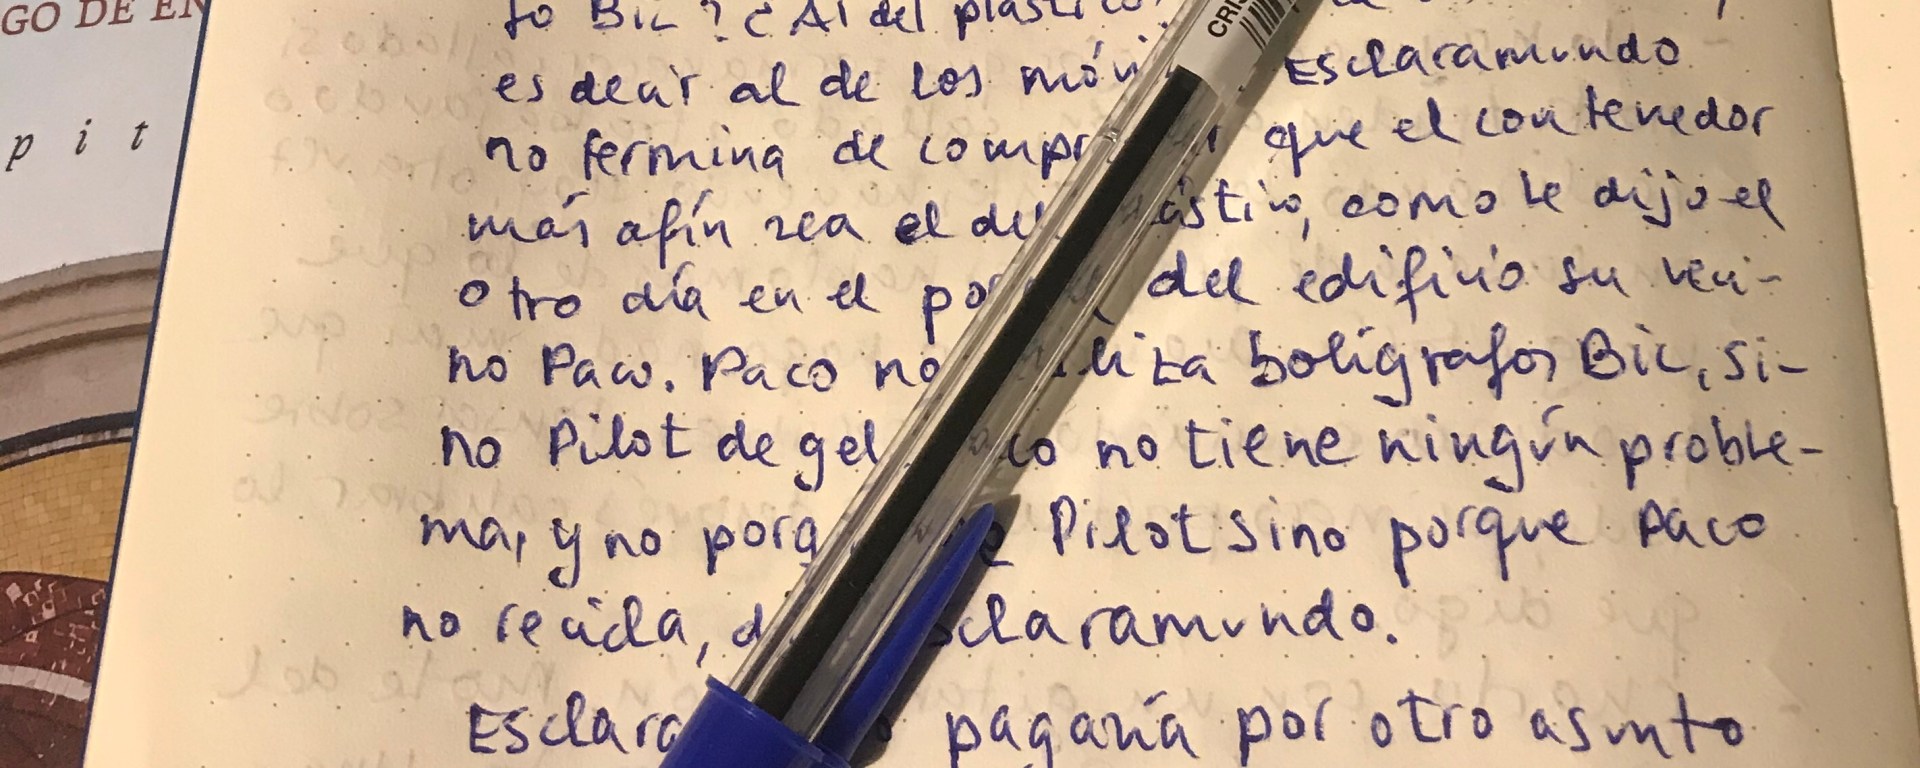 GO DE EN
p i t
to Bic? ¿Al del plástico?
es decir al de los Esclaramundo
no termina de que el contenedor
más afín sea el del como le dijo el
otro día en el del edificio su veci-
no Paco. Paco no bolígrafos Bic, si-
no Pilot de gel no tiene ningún proble-
ma, y no Pilot sino porque Paco
no recicla,
pagaría por otro asunto
CRIS